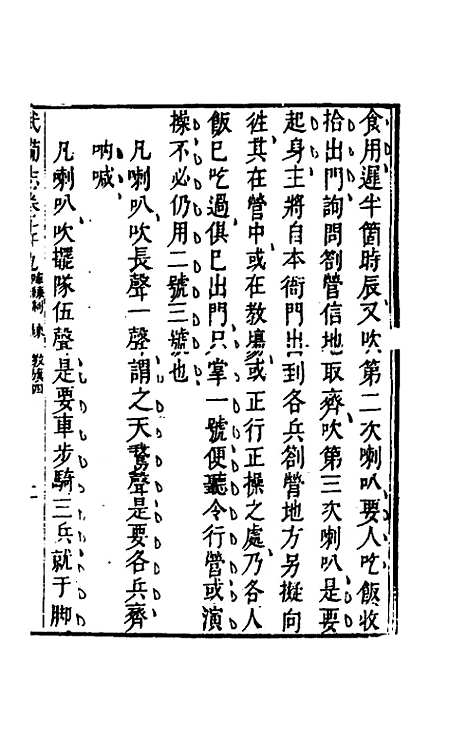 食用遲半箇時辰又吹第二次喇叭要人吃飯收
拾出門詢問劄營信地取齊吹第三次喇叭是要
起身主將自本衙門出到各兵劄營地方另擬向
徃其在營中或在教場或正行正操之處乃各人
飯已吃過俱已出門只掌一號便聽令行營或演
操不必仍用二號三號也
凡喇叭吹長聲一聲謂之天鵞聲是要各兵齊
吶喊
凡喇叭吹擺隊伍聲是要車步騎三兵就于脚
武備志卷
練 教旗四